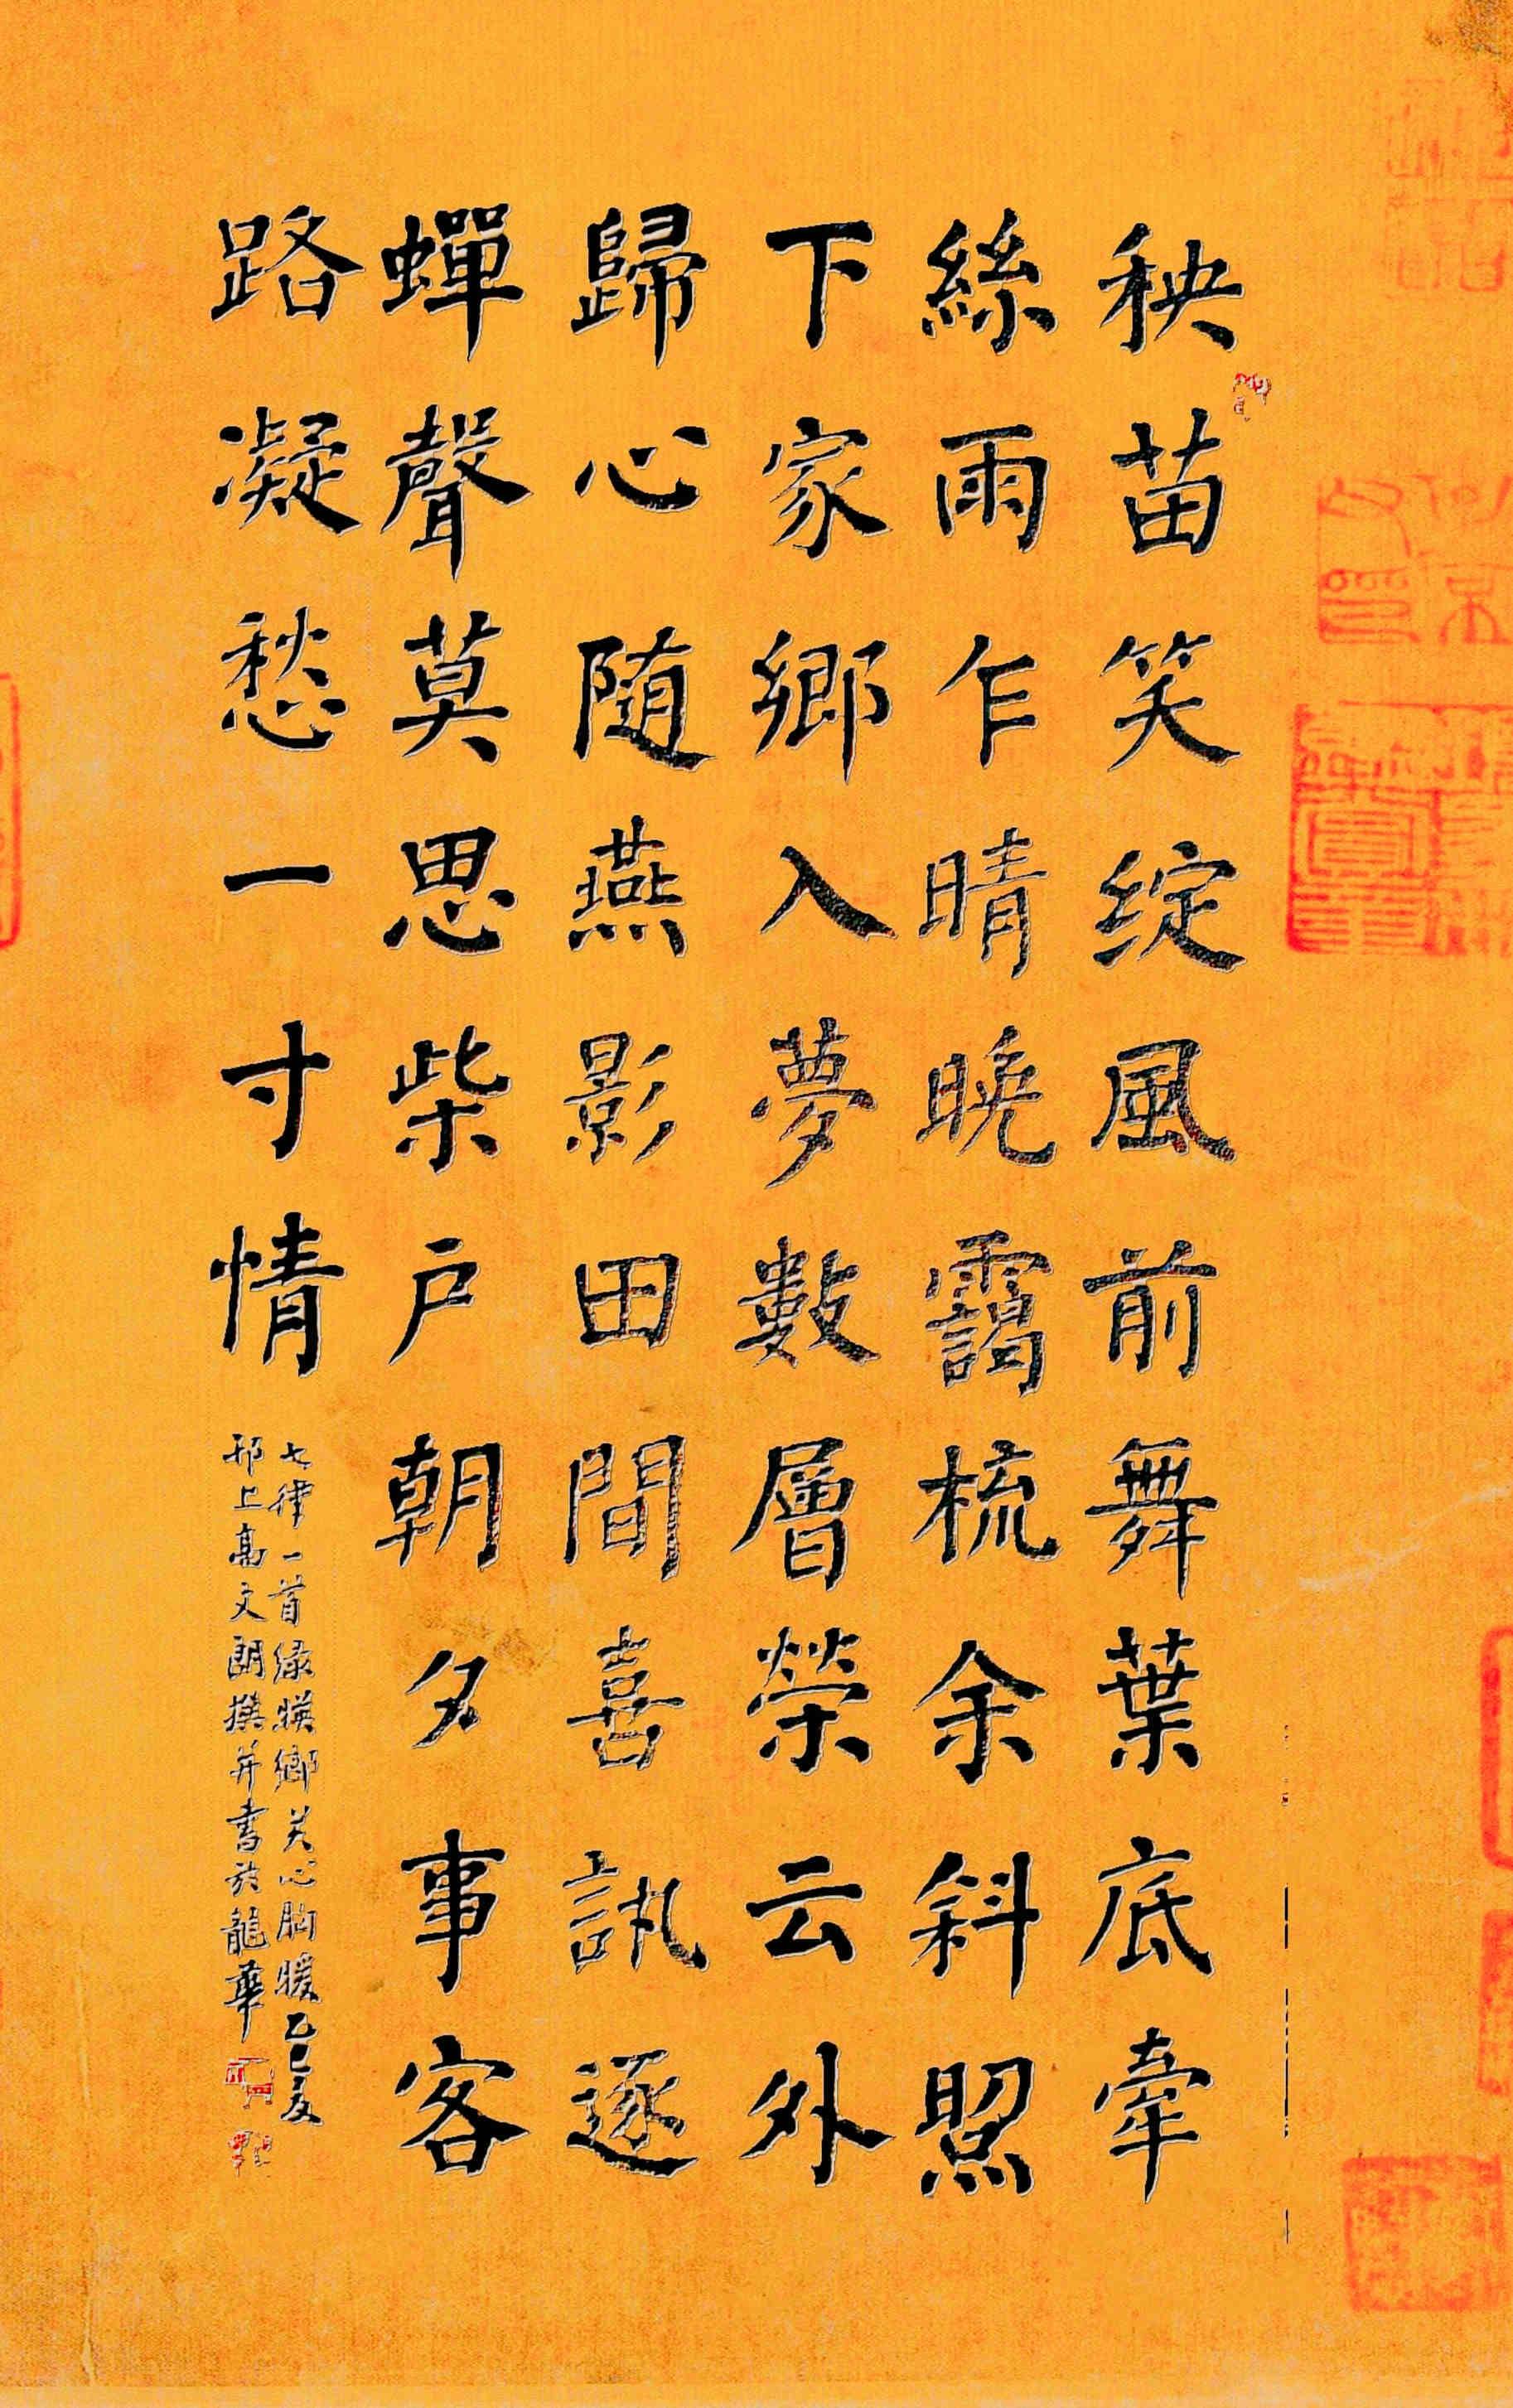 秧苗笑绽風前舞葉底牽
絲雨乍晴晚靄梳余斜照
下家鄉入夢數層榮云外
歸心随燕影田間喜訊逐
蟬聲莫思柴户朝夕事客
路凝愁一寸情
七律一首緑映鄉关心胸暖乙巳夏
邗上高文朗撰并書於龍華